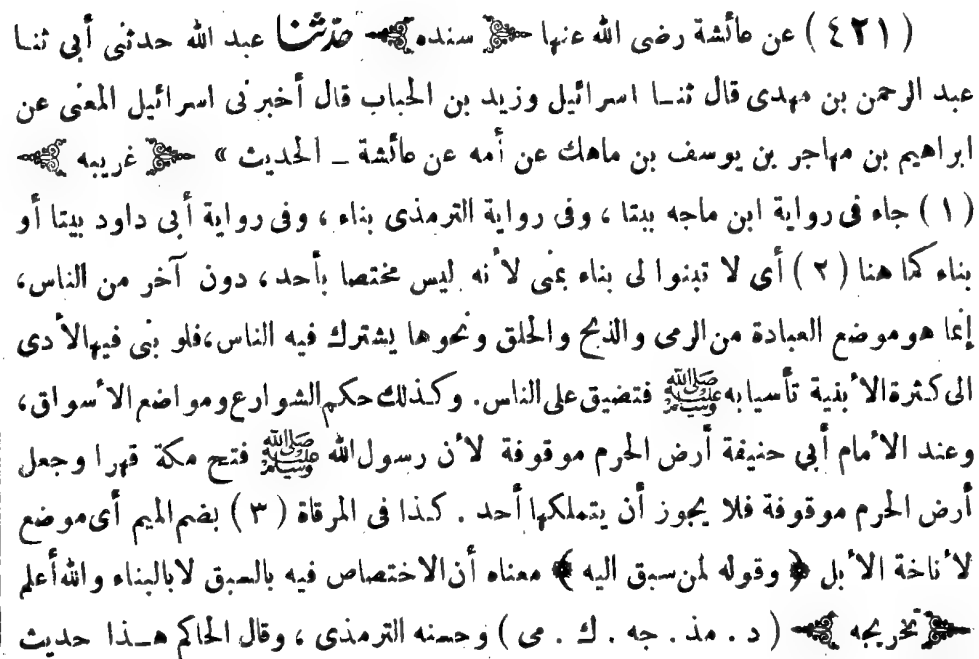 (٤٢١) عن عائشة رضى الله عنها ﴿ سنده ﴾ حدّثنا عبد الله حدثنى أبى ثنا
عبد الرحمن بن مهدى قال ثنا اسرائيل وزيد بن الحباب قال أخبرنى اسرائيل المعنى عن
ابراهيم بن مهاجر بن يوسف بن ماهك عن أمه عن عائشة ــ الحديث » ﴿ غريبه ﴾
(١) جاء فى رواية ابن ماجه بيتا ، وفى رواية الترمذى بناء ، وفى رواية أبى داود بيتا أو
بناء كما هنا (٢) أى لا تبنوا لى بناء بمنى لأنه ليس مختصا بأحد ، دون آخر من الناس،
إنما هو موضع العبادة من الرمى والذبح والحلق ونحوها يشترك فيه الناس،فلو بنى فيها لأدى
الى كثرة الأبنية تأسيا به ﷺ فتضيق على الناس. وكذلك حكم الشوارع ومواضع الأسواق،
وعند الأمام أبي حنيفة أرض الحرم موقوفة لأن رسول الله ﷺ فتح مكة قهرا وجعل
أرض الحرم موقوفة فلا يجوز أن يتملكها أحد . كذا فى المرقاة (٣) بضم الميم أى موضع
لأناخة الأبل ﴿ وقوله لمن سبق اليه ﴾ معناه أن الاختصاص فيه بالسبق لا بالبناء والله أعلم
﴿ تخريجه ﴾ ( د . مذ . جه . ك . مى ) وحسنه الترمذى ، وقال الحاكم هــذا حديث